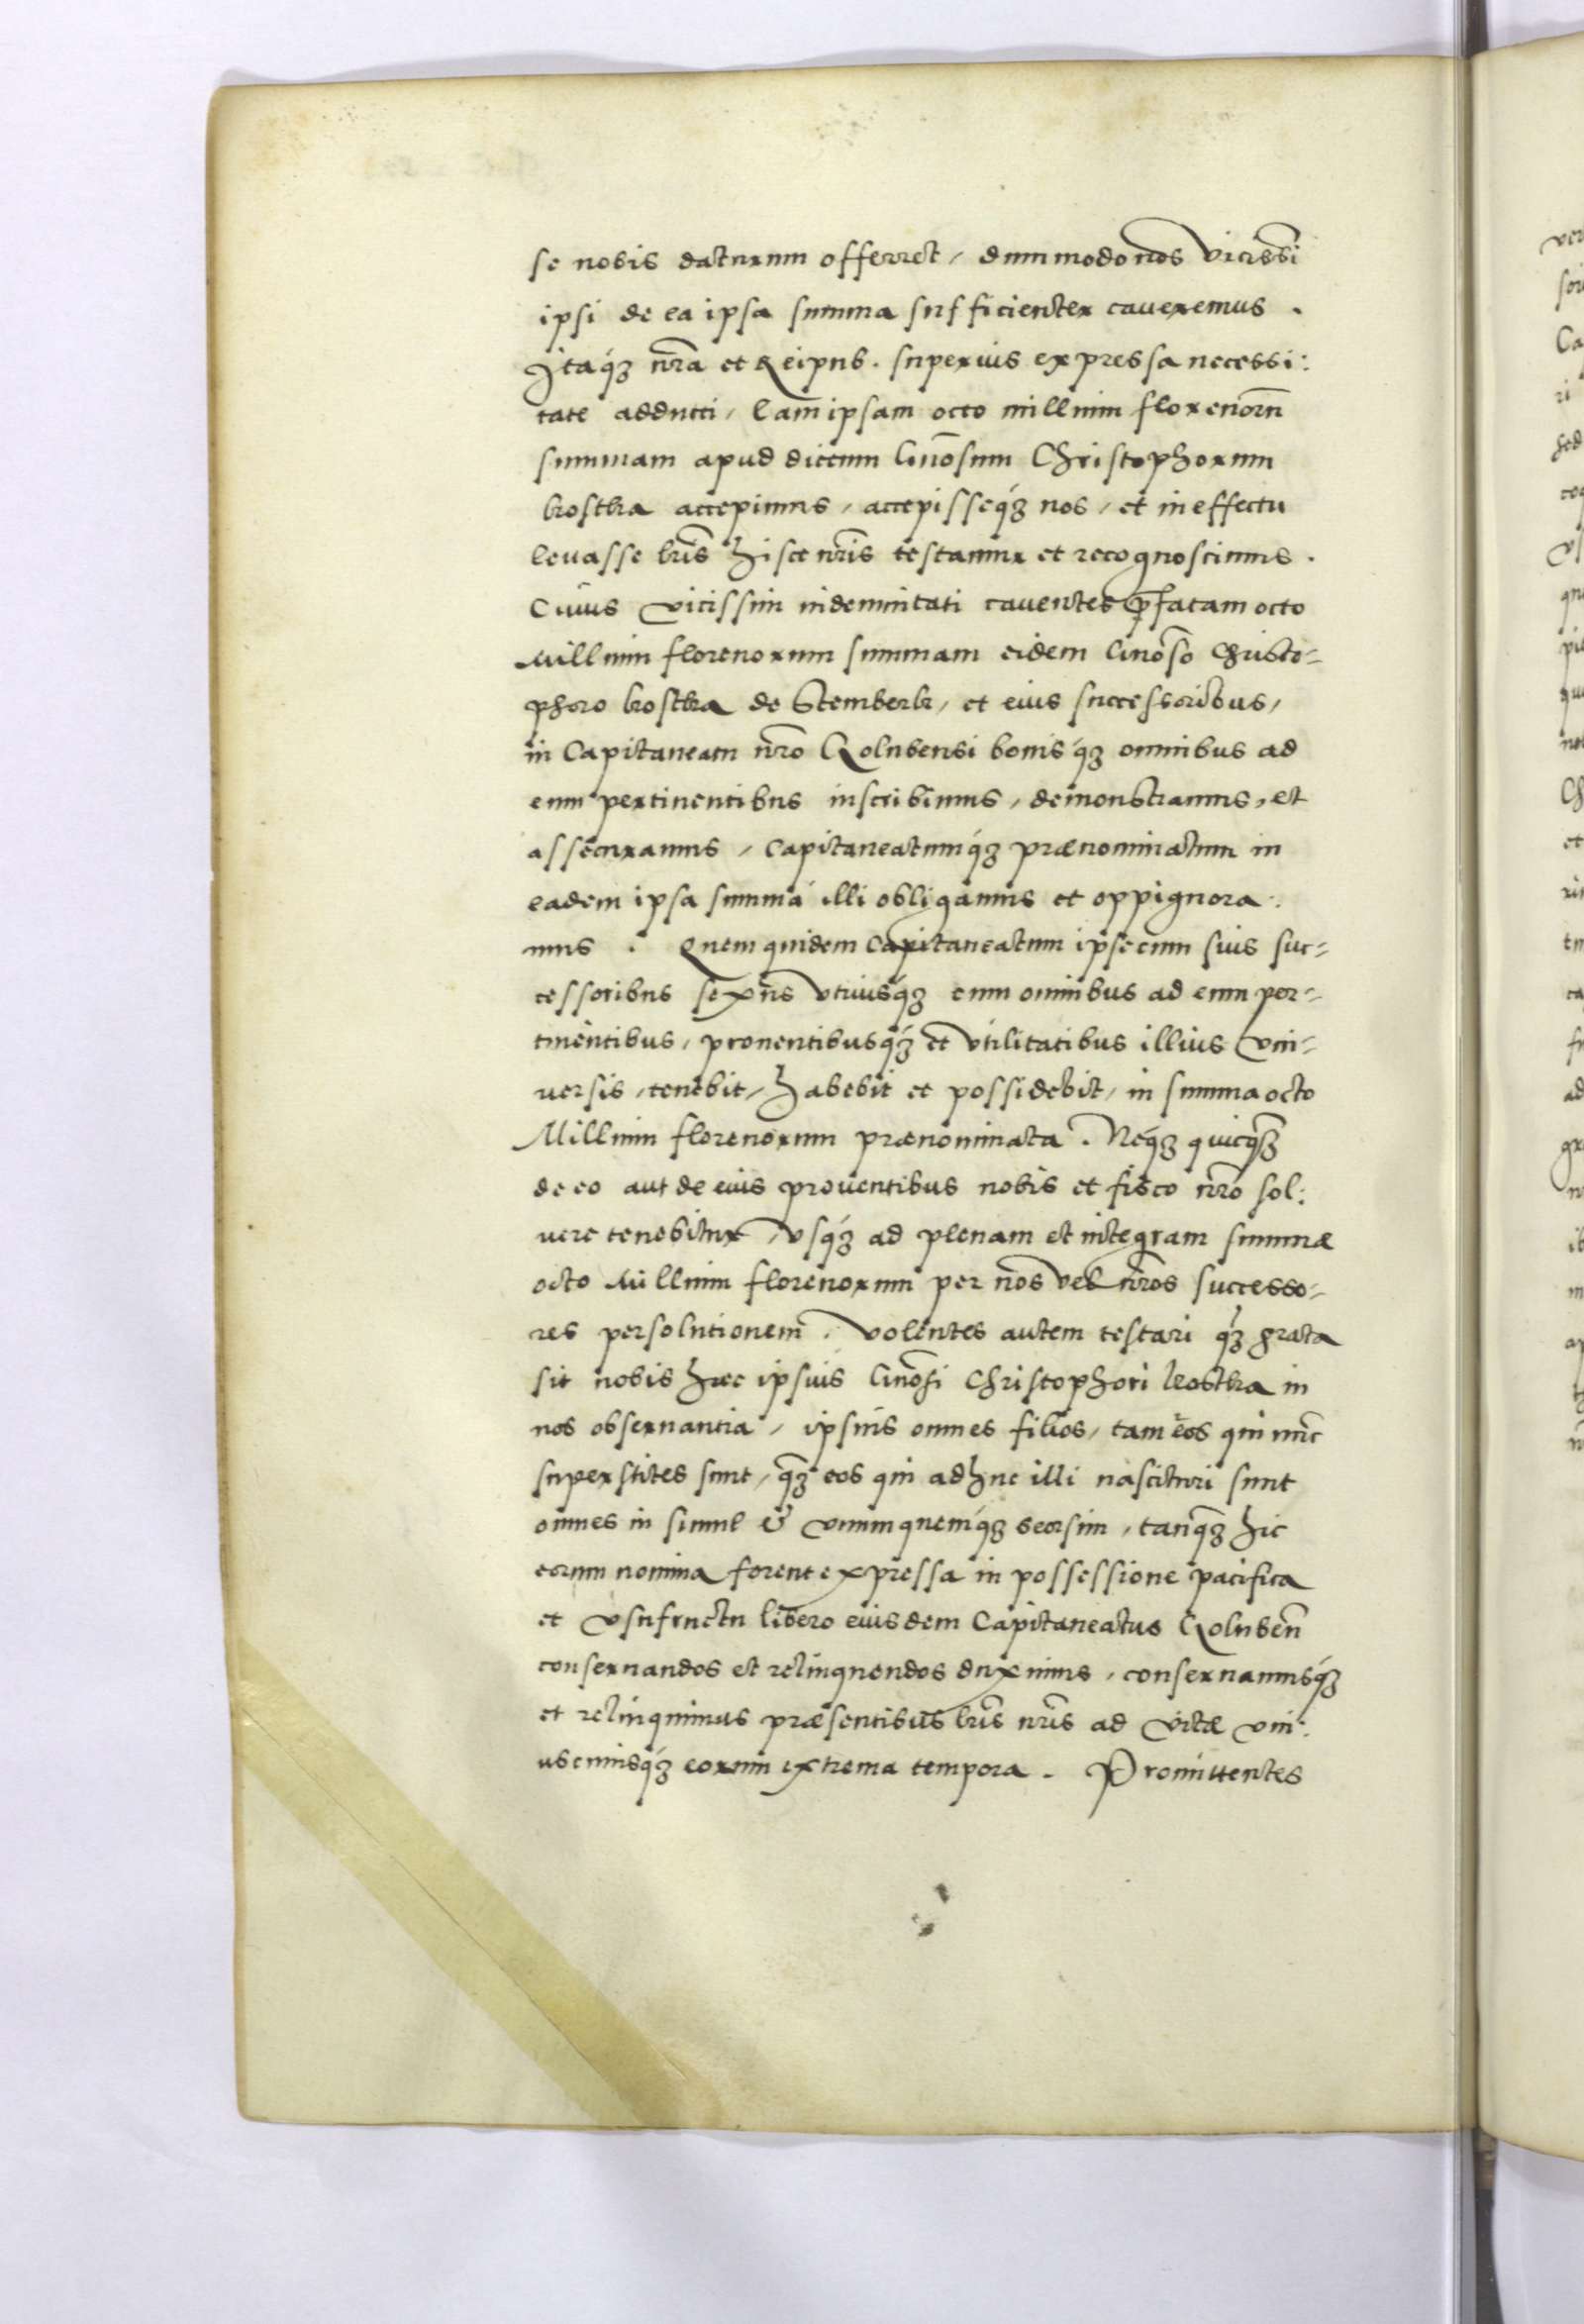 se nobis daturum offerret, dummodo nos vicissī
ipsi de ea ipsa summa sufficienter caveremus.
Itaq́ꝫ nr̄a et Reipub. superius expressa necessi:
tate adducti, Eam ipsam octo millium florenorū
summam apud dictum Gn̄osum Christophorum
kostka accepimus, accepisseq́ꝫ nos, et in effectu
levasse lr̄is hisce nr̄is testamur et recognoscimus.
Cuius vicissim indemnitati caventes p̄fatam octo
Millium florenorum summam eidem Gn̄oso Christo=
phoro kostka de Stemberk, et eius successoribus,
in Capitaneatu nr̄o Golubensi bonisq́ꝫ omnibus ad
eum pertinentibus inscribimus, demonstramus, et
assecuramus, Capitaneatumq́ꝫ prænominatum in
eadem ipsa summa illi obligamus et oppignora:
mus. Quem quidem Capitaneatum ipse cum suis suc=
cessoribus sexus utriusq́ꝫ cum omnibus ad eum per=
tinentibus, proventibusq́ꝫ et utilitatibus illius vni=
versis, tenebit, habebit et possidebit, in summa octo
Millium florenorum prænominata. Neq́ꝫ quicq̄ꝫ
de eo aut de eius proventibus nobis et fisco nr̄o sol:
vere tenebitur, vsq́ꝫ ad plenam et integram summæ
octo Millium florenorum per nos vel nr̄os successo=
res persolutionem. volentes autem testari q́ꝫ grata
sit nobis hæc ipsius Gn̄osi Christophori kostka in
nos observantia, ipsius omnes filios, tam eos qui nūc
superstites sunt, q̄ꝫ eos qui adhuc illi nascituri sunt
omnes in simul & vnumquemq́ꝫ seorsim, tanq̄ꝫ hic
eorum nomina forent expressa in possessione pacifica
et vsufructu libero eiusdem Capitaneatus Golubeñ
conservandos et relinquendos duximus, conservamusq́ꝫ
et relinquimus præsentibus lr̄is nr̄is ad vitæ vni:
uscuiusq́ꝫ eorum extrema tempora. Promittentes